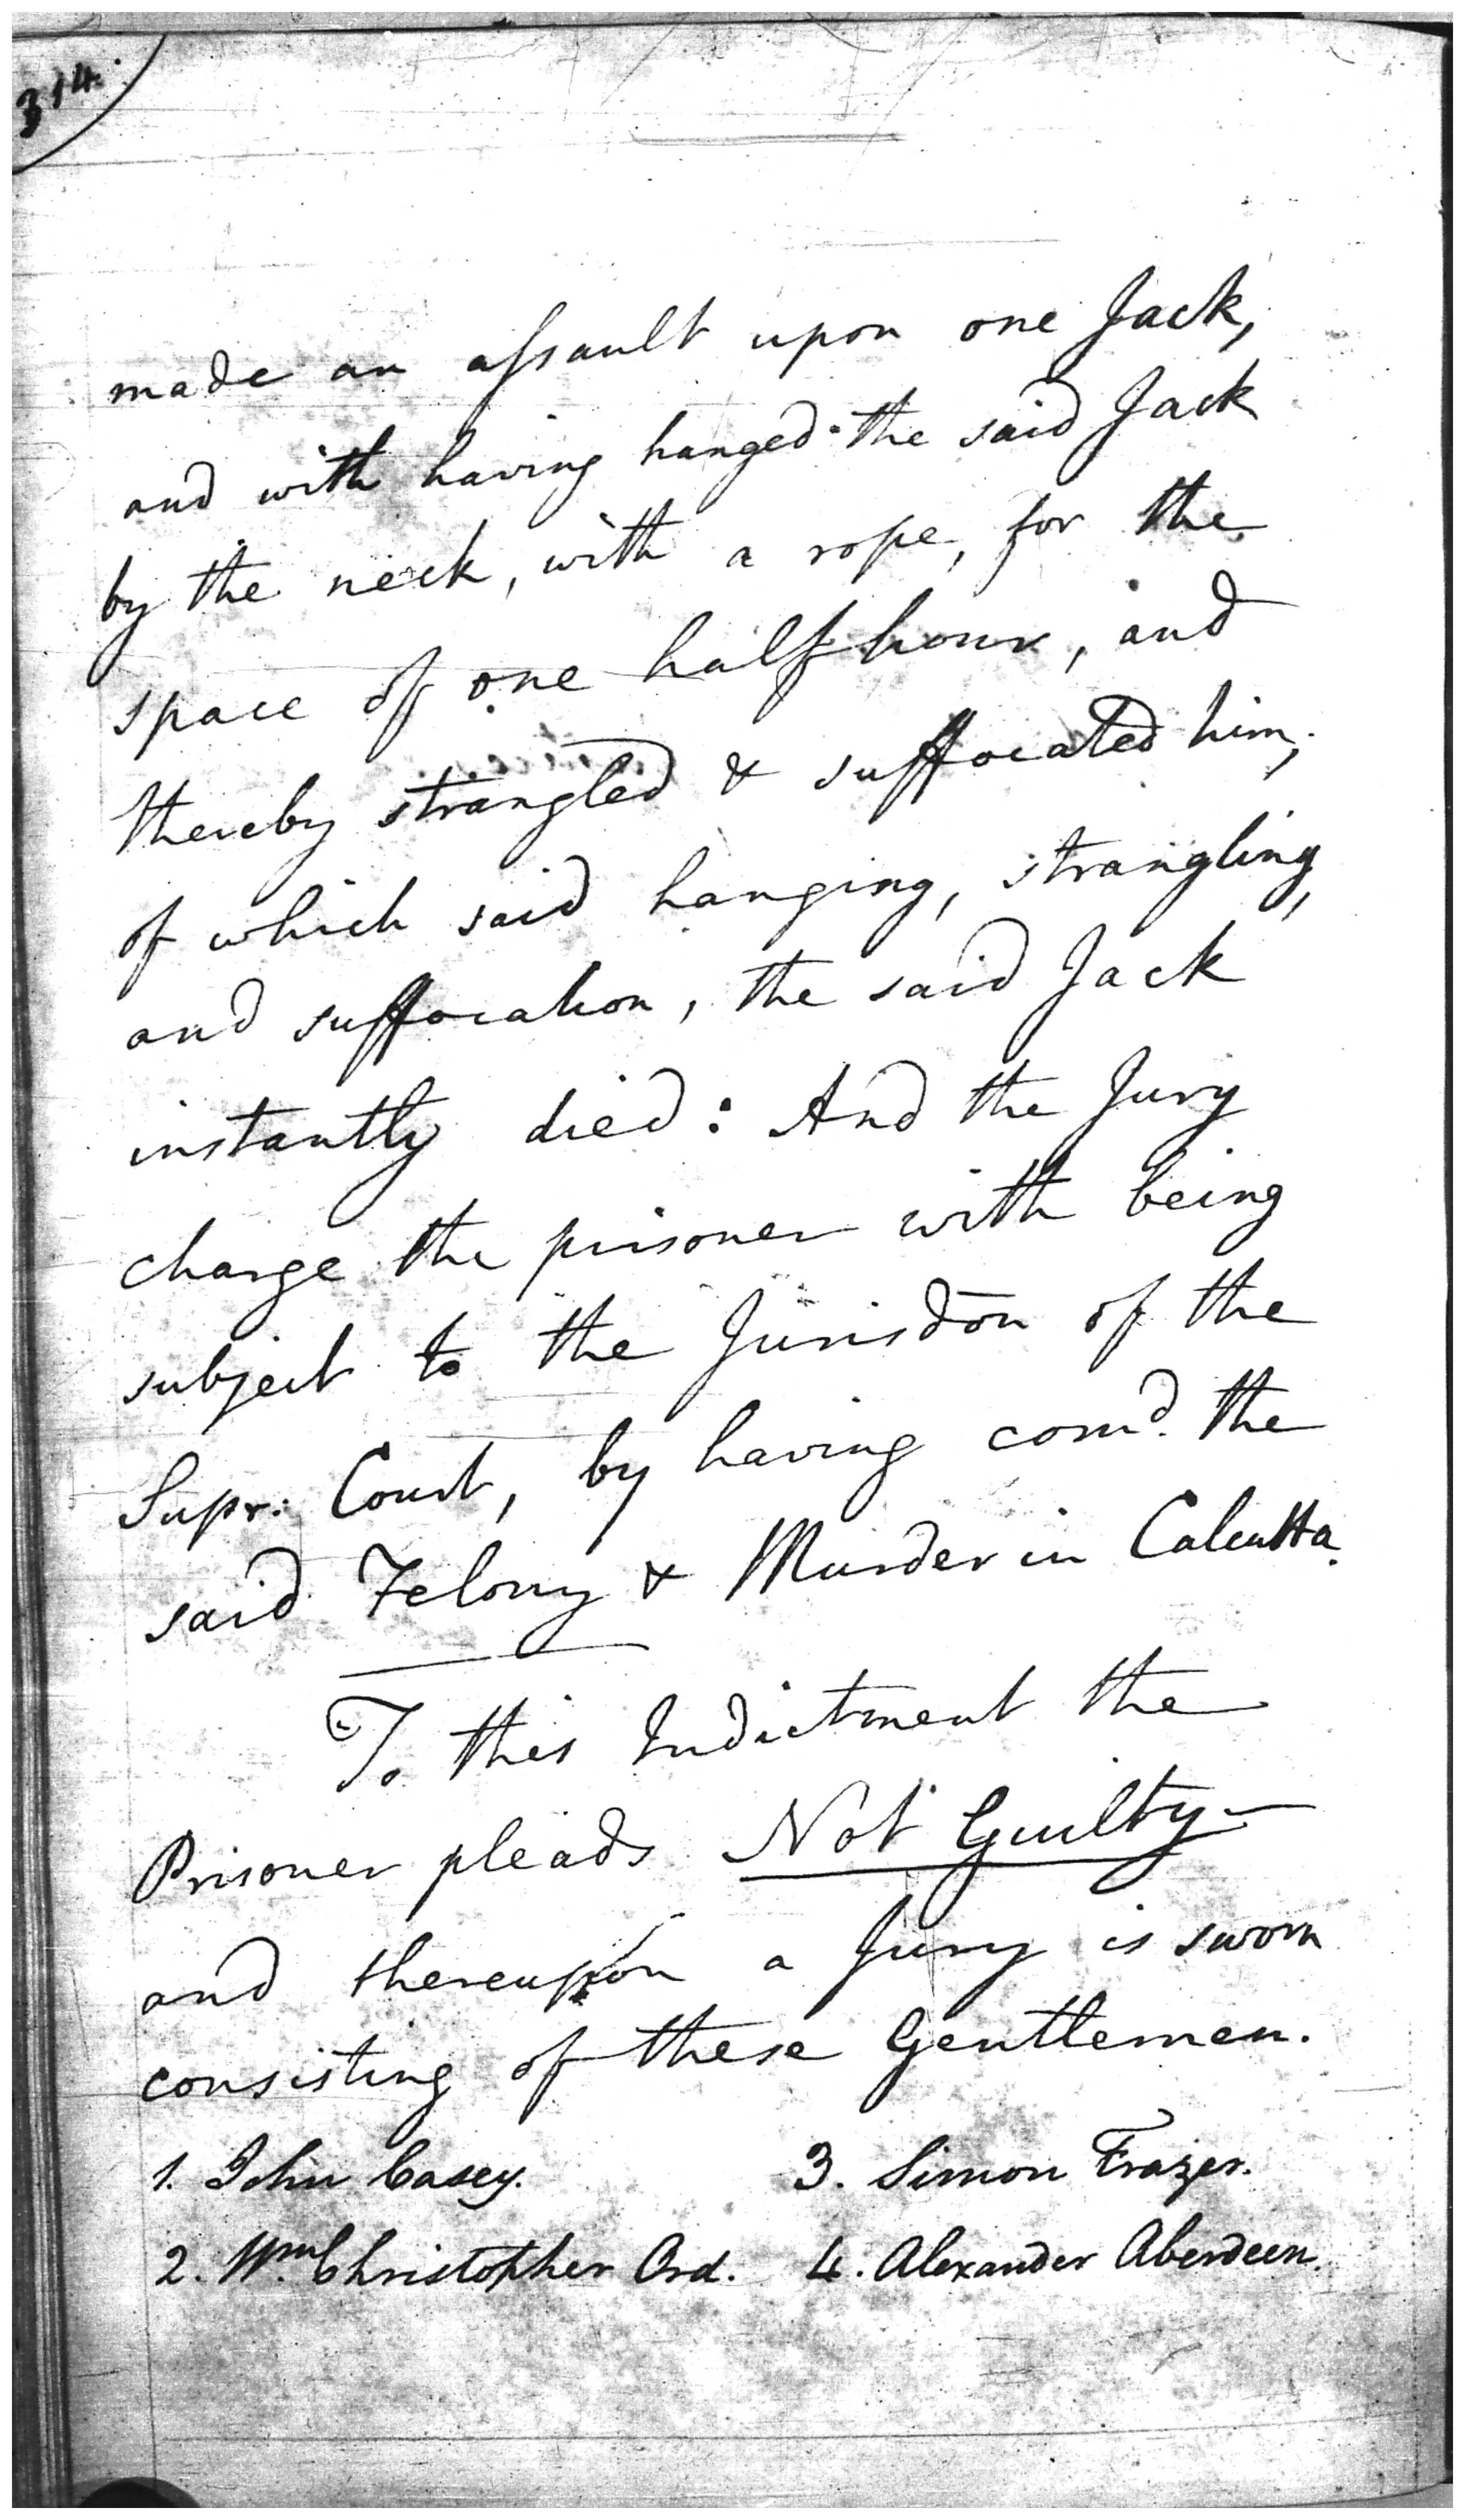 314.
made an assault upon one Jack,
and with having hanged the said Jack
by the neck, with a rope, for the
space of one half hour, and
thereby strangled & suffocated him;
of which said hanging, strangling,
and suffocation, the said Jack
instantly died: And the Jury
charge the prisoner with being
subject to the Jurisdon of the
Supr: Court, by having comd. the
said Felony & Murder in Calcutta.
To this Indictment the
Prisoner pleads Not Guilty—
and thereupon a Jury is sworn
consisting of these Gentlemen.
1. John Casey. 3. Simon Frazer.
2. Wm. Christopher Ord. 4. Alexander Aberdeen.